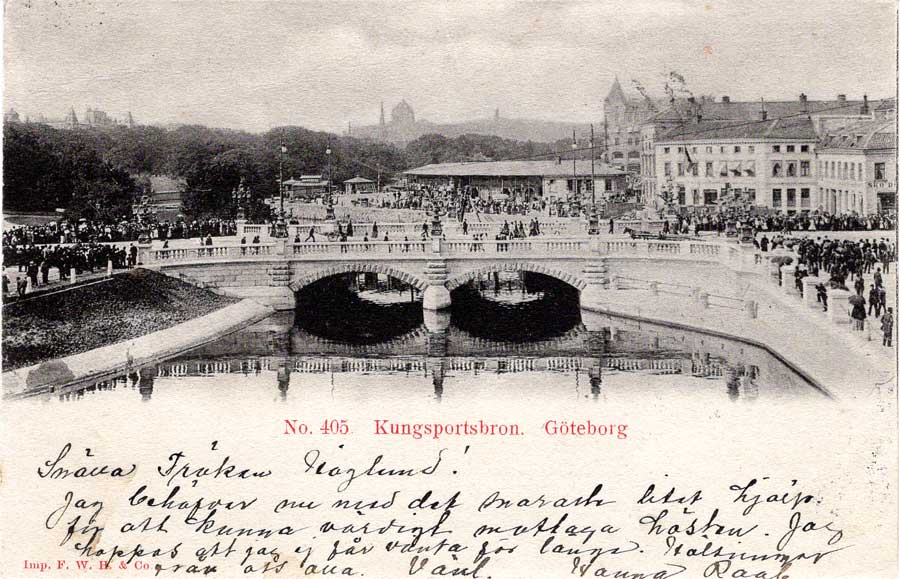 No. 405. Kungsportsbron. Göteborg
Snälla Fröken Höglund!
Jag behöfver nu med det snaraste litet hjälp.
för att kunna värdigt mottaga hösten. Jag
hoppas att jag ej får vänta för länge. Hälsningar
från oss alla. Vänl. Hanna
Imp. F. W. H. & Co